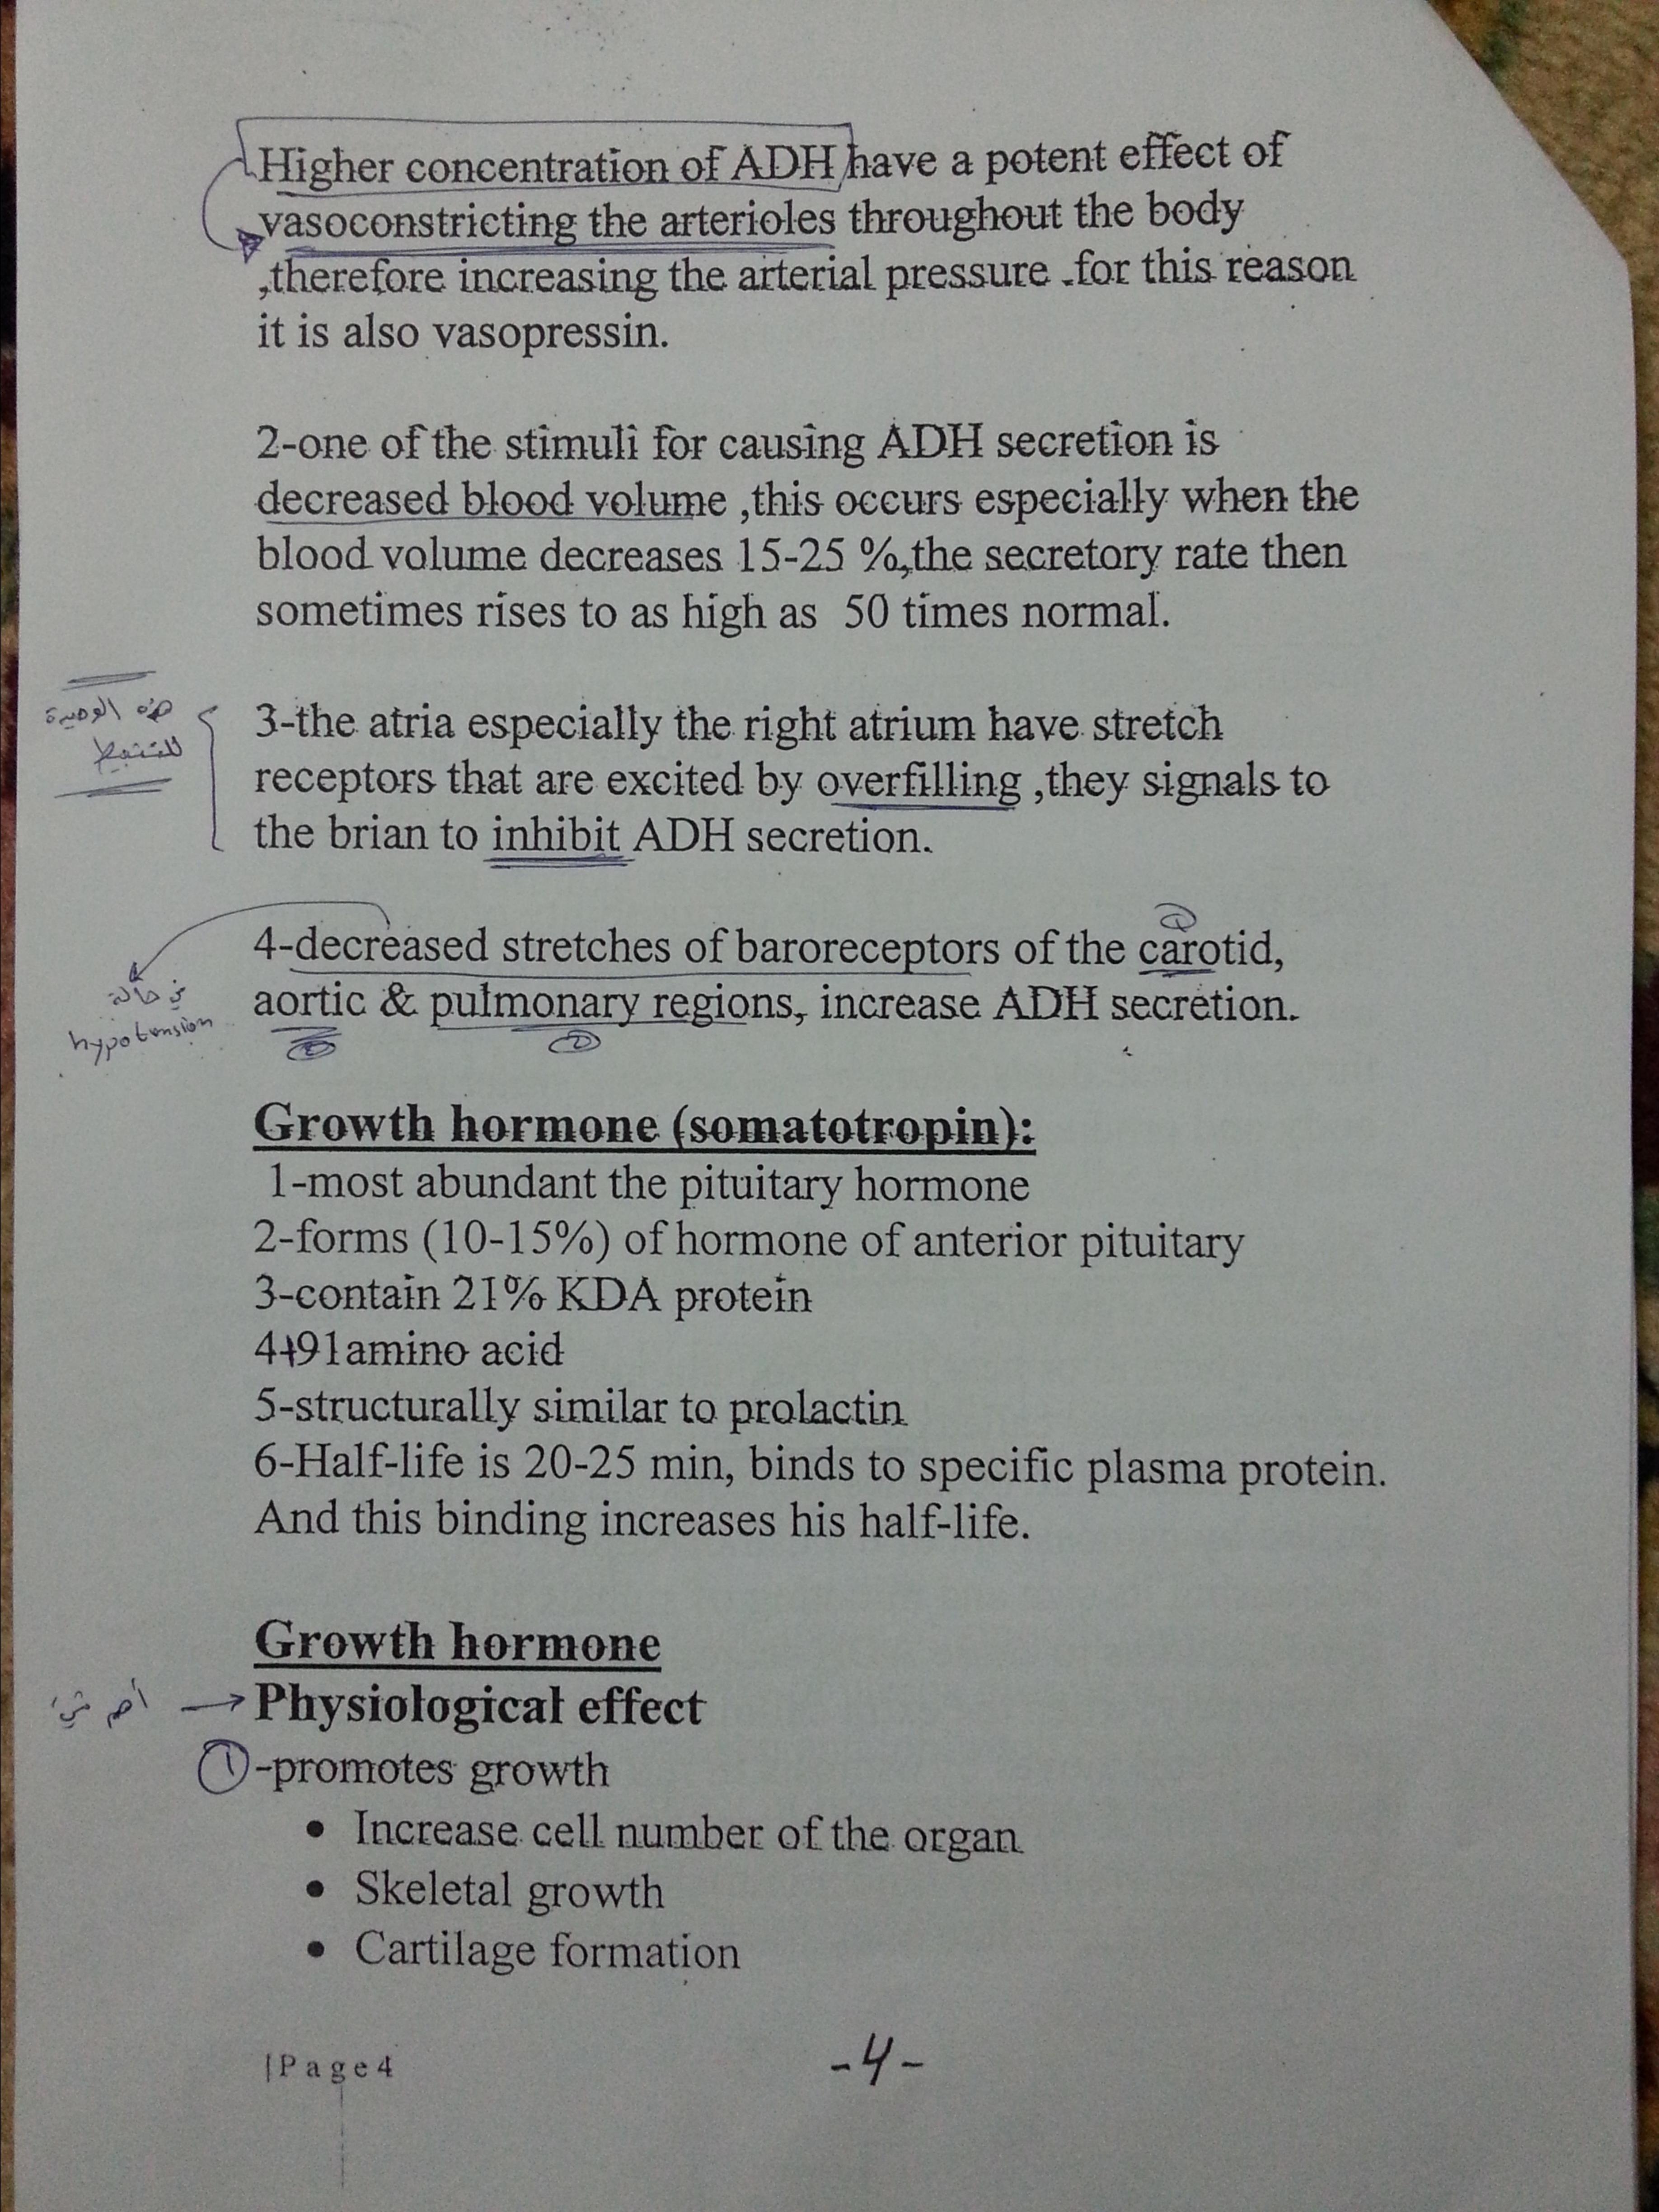 Higher concentration of ADH have a potent effect of
vasoconstricting the arterioles throughout the body
,therefore increasing the arterial pressure .for this reason
it is also vasopressin.
2-one of the stimuli for causing ADH secretion is
decreased blood volume ,this occurs especially when the
blood volume decreases 15-25 %,the secretory rate then
sometimes rises to as high as 50 times normal.
هذه الوحيدة
للتثبيط
3-the atria especially the right atrium have stretch
receptors that are excited by overfilling ,they signals to
the brian to inhibit ADH secretion.
4-decreased stretches of baroreceptors of the carotid,
aortic & pulmonary regions, increase ADH secretion.
في حالة
hypotension
Growth hormone (somatotropin):
1-most abundant the pituitary hormone
2-forms (10-15%) of hormone of anterior pituitary
3-contain 21% KDA protein
4-191amino acid
5-structurally similar to prolactin
6-Half-life is 20-25 min, binds to specific plasma protein.
And this binding increases his half-life.
Growth hormone
أهم شيء → Physiological effect
1-promotes growth
• Increase cell number of the organ
• Skeletal growth
• Cartilage formation
|Page4
-4-